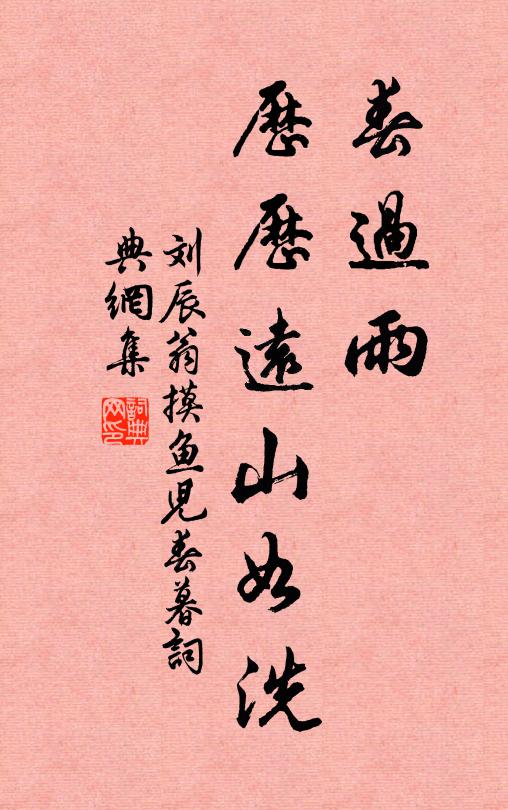 春過雨
歷歷遠山如洗
刘辰翁摸鱼児春暮詞
典網集
詞典网印